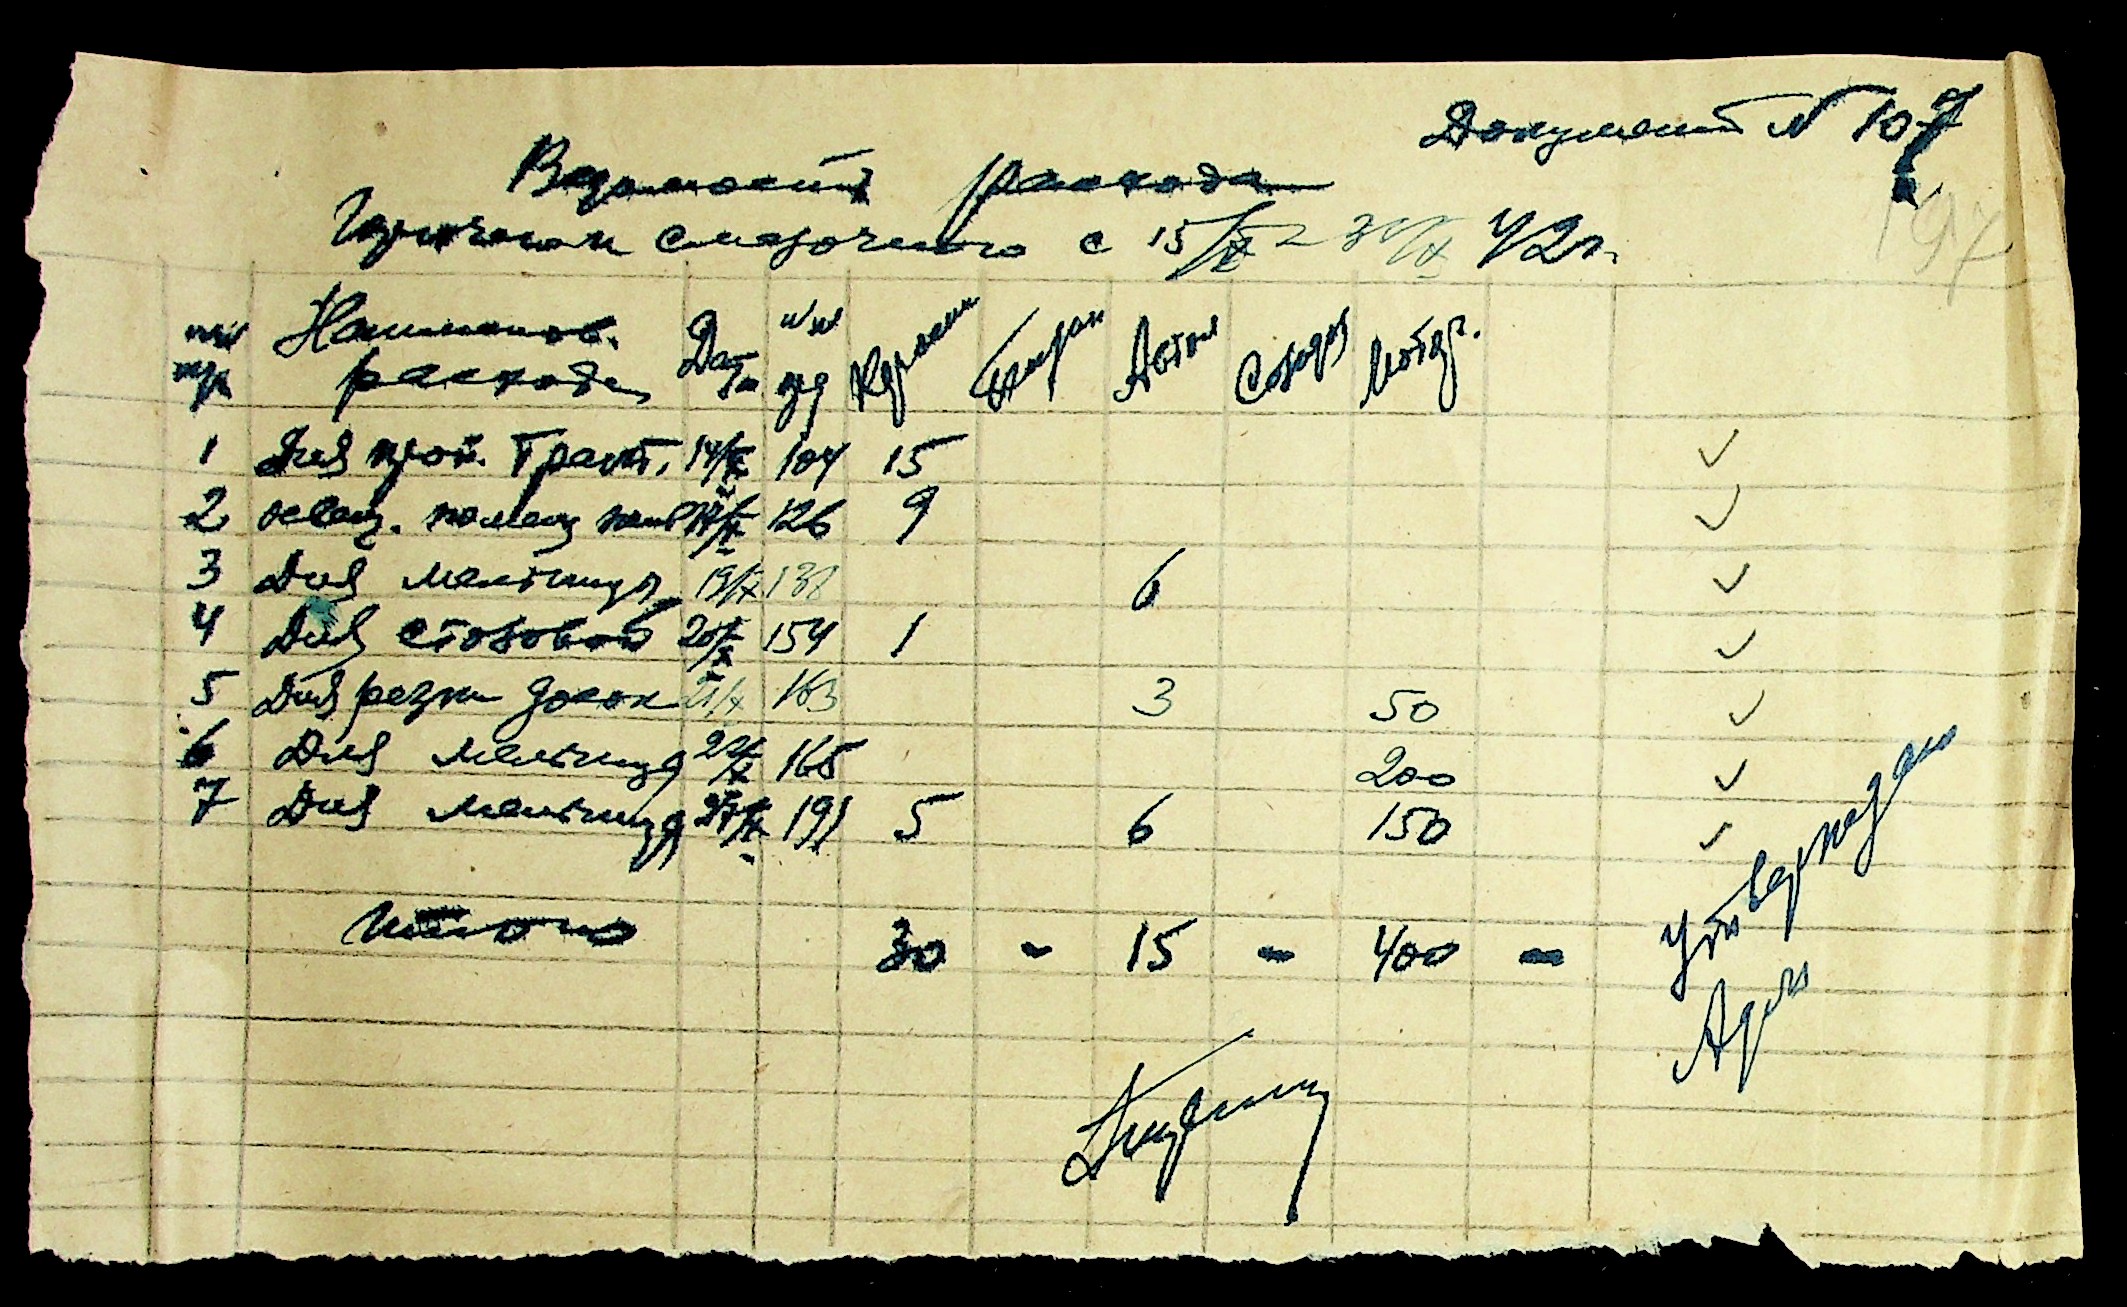 Документ № 107
197
Ведомость расхода
Горючего смазочного с 15/X - 30/X 42 г.
№№ п/п Наименов. расхода Дата №№ Керосин Автол Солидол
1 Для тракт. 14/X 104 15 ✓
2 освещ. помещ 126 9 ✓
3 Для мельницы 19/X 138 6 ✓
4 Для столовой 20/X 154 1 ✓
5 Для резки досок 21/X 163 3 50 ✓
6 Для мельницы 22/X 165 200 ✓
7 Для мельницы 191 5 6 150 ✓
Итого 30 - 15 - 400 -
Утверждаю